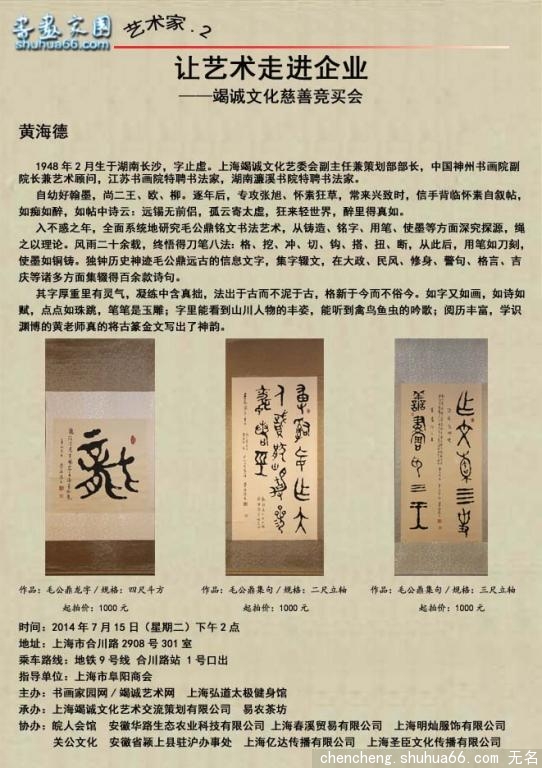 书画家园
shuhua66.com
艺术家.2
让艺术走进企业
——竭诚文化慈善竞买会
黄海德
1948年2月生于湖南长沙，字止虚。上海竭诚文化艺委会副主任兼策划部部长，中国神州书画院副
院长兼艺术顾问，江苏书画院特聘书法家，湖南濂溪书院特聘书法家。
自幼好翰墨，尚二王、欧、柳。逐年后，专攻张旭、怀素狂草，常来兴致时，信手背临怀素自叙帖，
如痴如醉，如帖中诗云：远锡无前侣，孤云寄太虚，狂来轻世界，醉里得真如。
入不惑之年，全面系统地研究毛公鼎铭文书法艺术，从铸造、铭字、用笔、使墨等方面深究探源，绳
之以理论。风雨二十余载，终悟得刀笔八法：格、挖、冲、切、钩、搭、扭、断，从此后，用笔如刀刻，
使墨如铜铸。独钟历史神迹毛公鼎远古的信息文字，集字辍文，在大政、民风、修身、警句、格言、吉
庆等诸多方面集辍得百余款诗句。
其字厚重里有灵气，凝练中含真拙，法出于古而不泥于古，格新于今而不俗今。如字又如画，如诗如
赋，点点如珠跳，笔笔是玉雕；字里能看到山川人物的丰姿，能听到禽鸟鱼虫的吟歌；阅历丰富，学识
渊博的黄老师真的将古篆金文写出了神韵。
作品：毛公鼎龙字/规格：四尺斗方
起拍价：1000元
作品：毛公鼎集句/规格：二尺立轴
起拍价：1000元
作品：毛公鼎集句/规格：三尺立轴
起拍价：1000元
时间：2014年7月15日（星期二）下午2点
地址：上海市合川路2908号301室
乘车路线：地铁9号线 合川路站 1号口出
指导单位：上海市阜阳商会
主办：书画家园网/竭诚艺术网 上海弘道太极健身馆
承办：上海竭诚文化艺术交流策划有限公司 易农茶坊
协办：皖人会馆 安徽华路生态农业科技有限公司 上海春溪贸易有限公司 上海明灿服饰有限公司
关公文化 安徽省颍上县驻沪办事处 上海亿达传播有限公司 上海圣臣文化传播有限公司
chencheng.shuhua66.com 无名